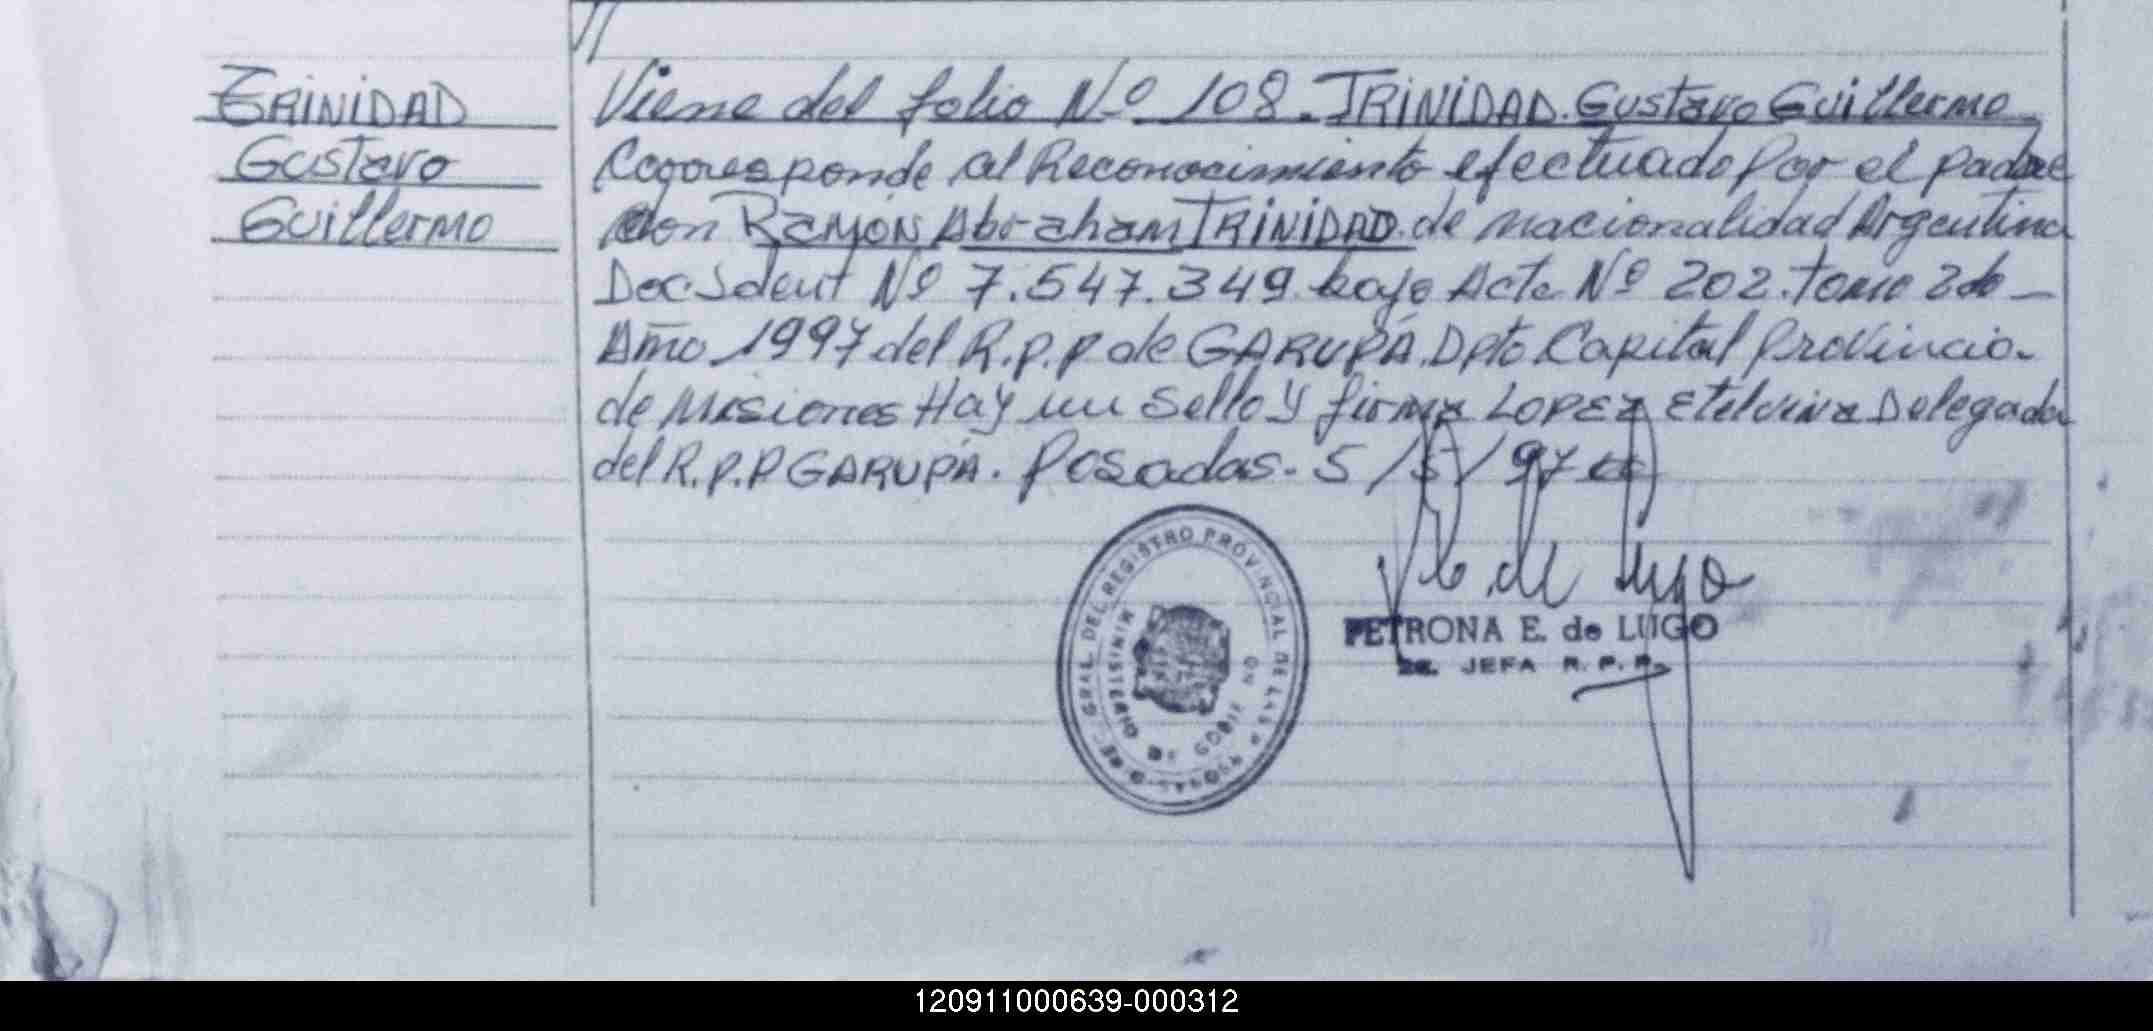 TRINIDAD
Gustavo
Guillermo
Viene del folio Nº 108. TRINIDAD. Gustavo Guillermo
Corresponde al Reconocimiento efectuado por el padre
don Ramón Abraham TRINIDAD. de nacionalidad Argentina
Doc Ident Nº 7.547.349 bajo Acta Nº 202. tomo 2do -
Año 1997 del R.p.p de GARUPÁ. Dpto Capital provincia.
de Misiones Hay un Sello y firma LOPEZ Etelvina Delegada
del R.p.p GARUPÁ. Posadas. 5/5/97
de Lugo
PETRONA E. de LUGO
JEFA R. P. P.
GRAL. DEL REGISTRO PROVINCIAL DE LAS P
MINISTERIO DE GOBIERNO
120911000639-000312